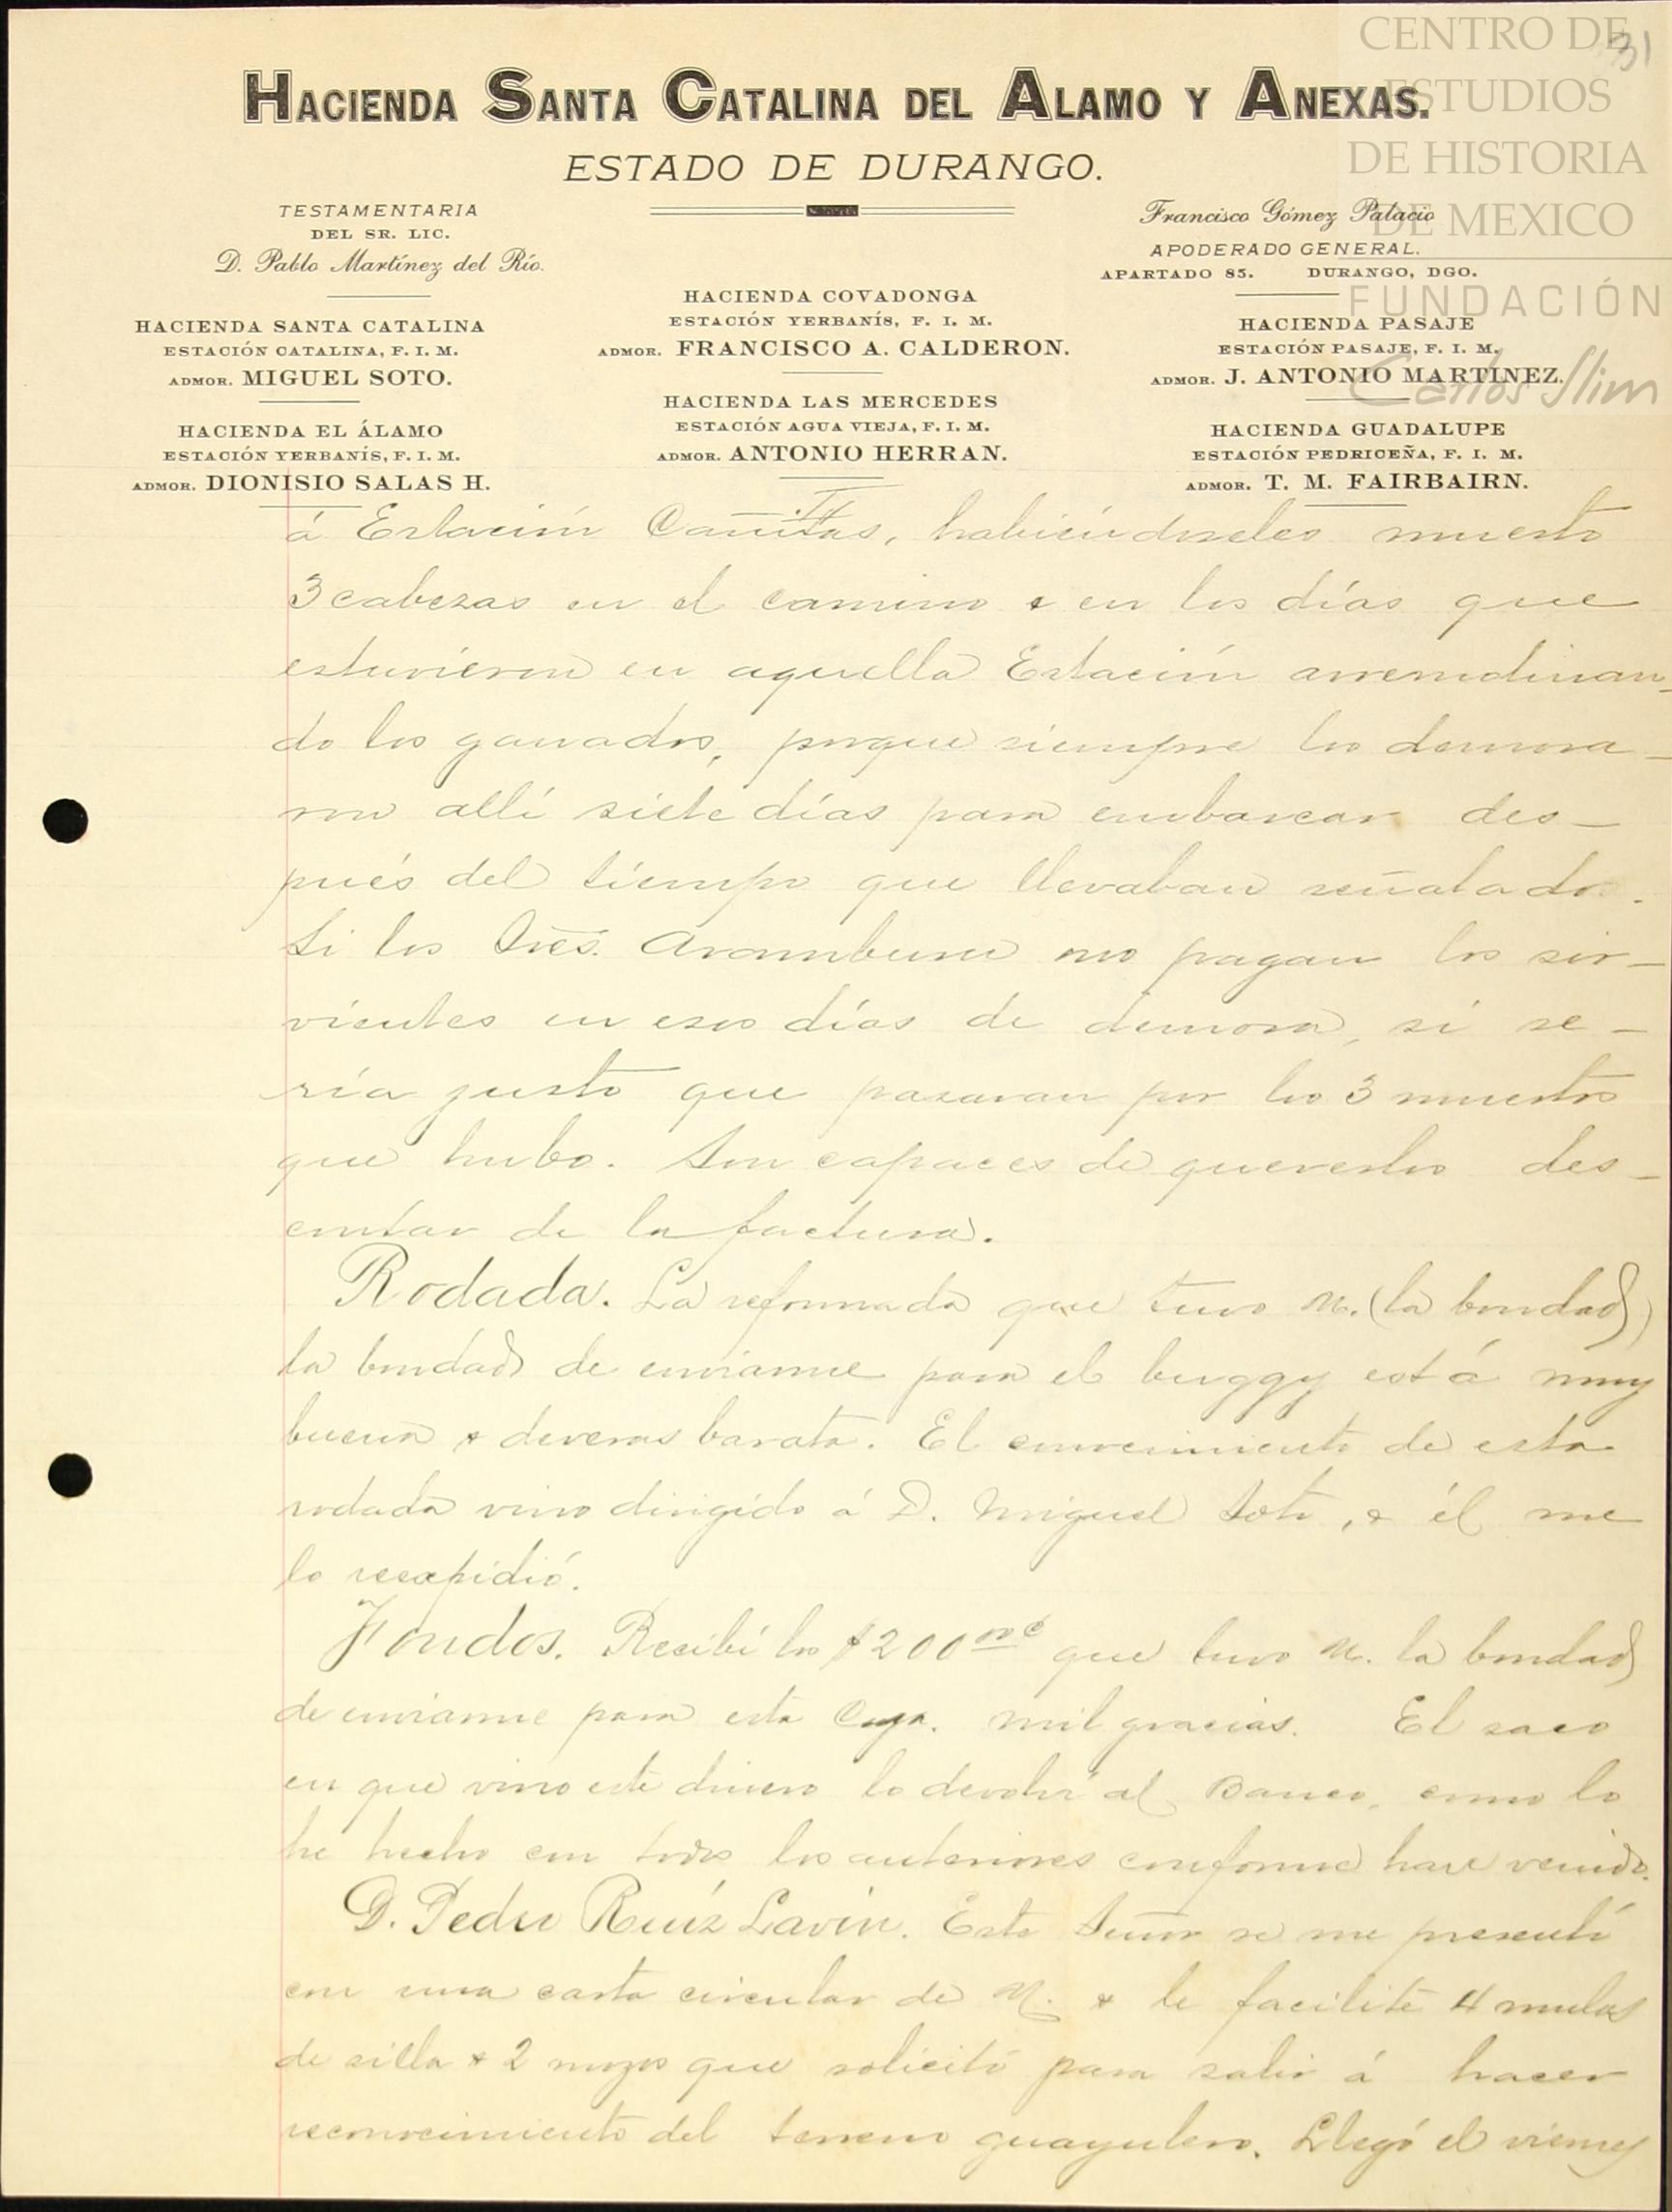 CENTRO DE
ESTUDIOS
DE HISTORIA
DE MEXICO
FUNDACIÓN
Carlos Slim
31
HACIENDA SANTA CATALINA DEL ALAMO Y ANEXAS.
ESTADO DE DURANGO.
TESTAMENTARIA
DEL SR. LIC.
D. Pablo Martínez del Río.
HACIENDA SANTA CATALINA
ESTACIÓN CATALINA, F. I. M.
ADMOR. MIGUEL SOTO.
HACIENDA EL ÁLAMO
ESTACIÓN YERBANÍS, F. I. M.
ADMOR. DIONISIO SALAS H.
HACIENDA COVADONGA
ESTACIÓN YERBANÍS, F. I. M.
ADMOR. FRANCISCO A. CALDERON.
HACIENDA LAS MERCEDES
ESTACIÓN AGUA VIEJA, F. I. M.
ADMOR. ANTONIO HERRAN.
Francisco Gómez Palacio
APODERADO GENERAL.
APARTADO 85. DURANGO, DGO.
HACIENDA PASAJE
ESTACIÓN PASAJE, F. I. M.
ADMOR. J. ANTONIO MARTINEZ.
HACIENDA GUADALUPE
ESTACIÓN PEDRICEÑA, F. I. M.
ADMOR. T. M. FAIRBAIRN.
II
á Estación Cañitas, habiéndoseles muerto
3 cabezas en el camino & en los días que
estuvieron en aquella Estación arremolinan-
do los ganados, porque siempre los demora-
ron allí siete días para embarcar des-
pués del tiempo que llevaban señalado.
Si los Sres. Aramburu no pagan los sir-
vientes en esos días de demora, si se-
ría justo que pasaran por los 3 muertos
que hubo. Son capaces de quererlos des-
contar de la factura.
Rodada. La reformada que tuvo U. (la bondad)
la bondad de enviarme para el buggy está muy
buena & deveras barata. El conocimiento de esta
rodada vino dirigido á D. Miguel Soto, & él me
lo reexpidió.
Fondos. Recibí los $200 que tuvo U. la bondad
de enviarme para esta Caja. Mil gracias. El saco
en que vino este dinero lo devolví al Banco, como lo
he hecho con todos los anteriores conforme han venido.
D. Pedro Ruíz Lavín. Este Señor se me presentó
con una carta circular de U. & le facilité 4 mulas
de silla & 2 mozos que solicitó para salir á hacer
reconocimiento del terreno guayulero. Llegó el viernes